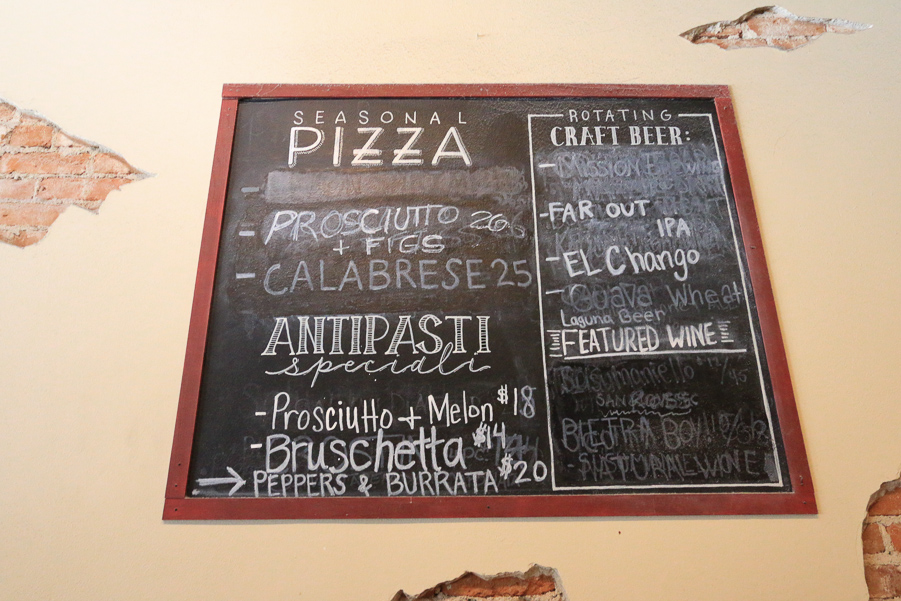 SEASONAL
PIZZA
- PROSCIUTTO 26
+ FIGS
- CALABRESE 25
ANTIPASTI
speciali
- Prosciutto + Melon $18
- Bruschetta $14
→ PEPPERS & BURRATA $20
ROTATING
CRAFT BEER:
- FAR OUT
IPA
- EL Chango
- Guava Wheat
Laguna Beer
FEATURED WINE